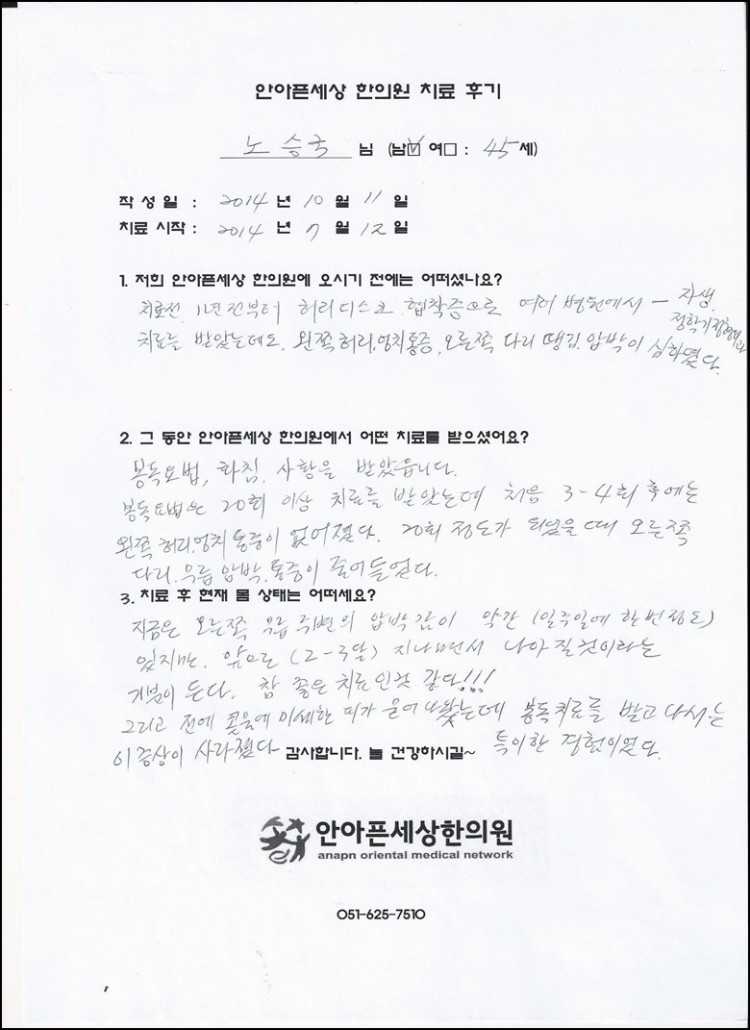 안아픈세상 한의원 치료 후기
노승국 님 (남☑ 여□ : 45세)
작성일 : 2014 년 10 월 11 일
치료 시작 : 2014 년 7 월 12 일
1. 저희 안아픈세상 한의원에 오시기 전에는 어떠셨나요?
치료전. 1년전부터 허리디스크. 협착증으로 여러 병원에서 – 자생.
치료를 받았는데도. 왼쪽허리.엉치통증, 오른쪽 다리 땡김. 압박이 심하였다.
2. 그 동안 안아픈세상 한의원에서 어떤 치료를 받으셨어요?
봉독요법, 화침. 사혈을 받았읍니다.
봉독요법은 20회 이상 치료를 받았는데 처음 3-4회 후에는
왼쪽허리.엉치통증이 없어졌다. 20회 정도가 되었을때 오른쪽
다리.무릅압박.통증이 줄어들었다.
3. 치료 후 현재 몸 상태는 어떠세요?
지금은 오른쪽 무릅 주변의 압박감이 약간 (일주일에 한번정도)
있지만. 앞으로 (2-3달) 지나면서 나아질것이라는
기분이 든다. 참 좋은 치료인것 같다!!!
그리고 전에 콧물에 미세한 피가 묻어나왔는데 봉독치료를 받고 나서는
이증상이 사라졌다 특이한 경험이었다.
감사합니다. 늘 건강하시길~
안아픈세상한의원
anapn oriental medical network
051-625-7510